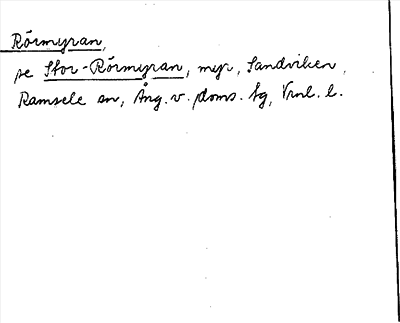 Rörmyran,
se Stor-Rörmyran, myr, Sandviken,
Ramsele sn, Ång. v. doms. tg, Vnl. l.